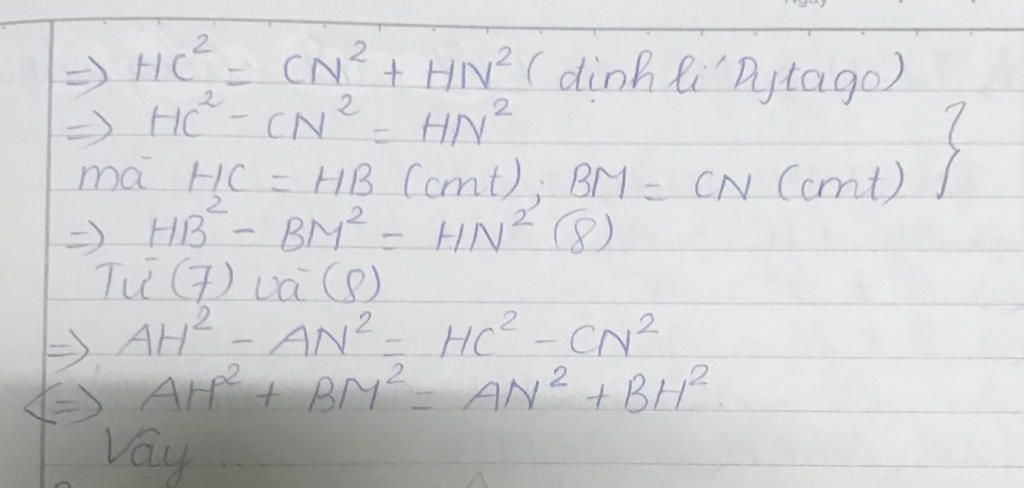 ⇒ HC² = CN² + HN² (định lí Pytago)
⇒ HC² - CN² = HN²
mà HC = HB (cmt); BM = CN (cmt) }
⇒ HB² - BM² = HN² (8)
Từ (7) và (8)
⇒ AH² - AN² = HC² - CN²
⇔ AH² + BM² = AN² + BH²
Vậy ...